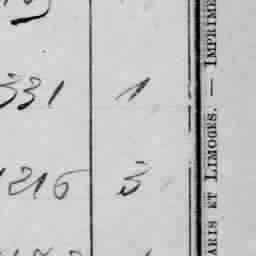 331 1
216 3
ARIS ET LIMOGES. — IMPRIME